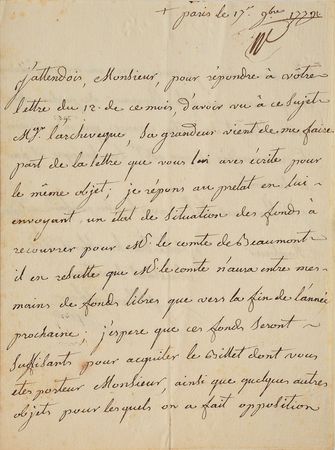 + paris le 17. 9bre
j'attendois, Monsieur, pour répondre à vôtre
lettre du 12. de ce mois, d'avoir vu à ce sujet
Mgr. l'archeveque, Sa grandeur vient de me faire
part de la lettre que vous lui avés écrite pour
le même objet; je répons au prelat en lui
envoyant un état de Situation des fonds à
recouvrer pour Mr. le comte de Beaumont
il en résulte que Mr. le comte n'aura entre mes
mains de fonds libres que vers la fin de l'année
prochaine; j'espere que ces fonds Seront
Suffisants pour acquiter le Billet dont vous
etes porteur Monsieur, ainsi que quelques autres
objets pour lesquels on a fait opposition